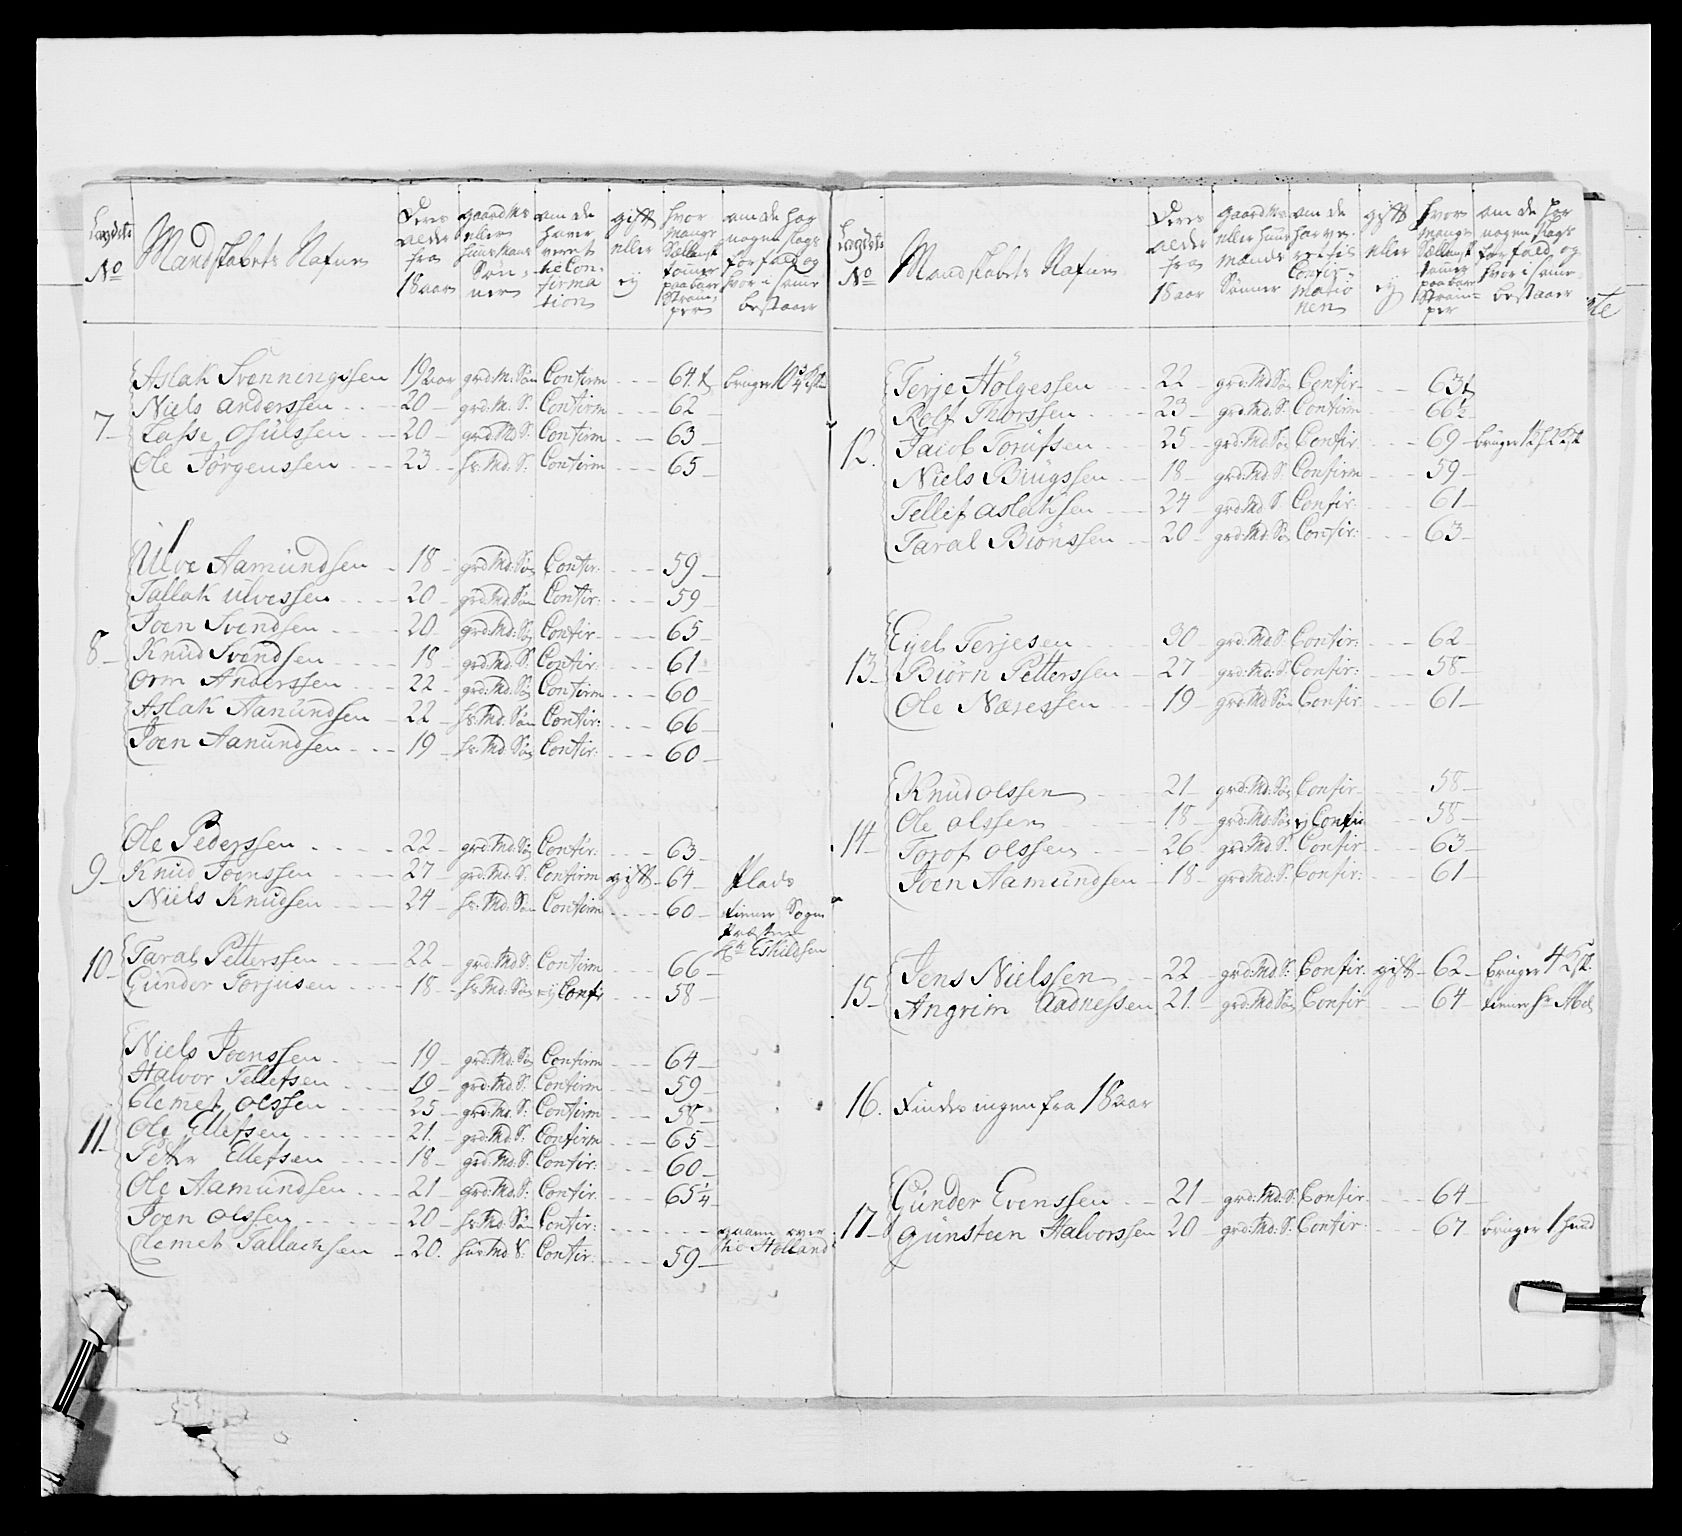 Lægdets No
Mandskabets Nafne
Deres alder fra 18 aar
gaard Ms eller huus Mans Sønner
om de haver veret Confirmation
gift eller ey
hvor mange Sællansk tomer paa bare Strømper
om de har nogen slags forfald og hvor i samme bestaaer
7
Aslak Svenningssen 19 aar grd: M: Søn Confirm 64 t bruger
Niels Anderssen 20 grd: M. S: Confirm 62
Tasse Osulssen 20 grd: Md S: Confirm 63
Ole Jørgenssen 23 hs: Md. S: Confirm 65
8
Ulve Aamundsen 18 grd: Md: Søn Confir: 59
Tallak Ulvessen 20 grd: Md. Søn Confir: 59
Joen Svendsen 20 grd: Md: Søn Confir 65
Knud Svendsen 18 grd: Md. S: Confir: 61
Orm Anderssen 22 grd: Md: Søn Confirm 60
Aslak Aanundsen 22 hs: Md. Søn Confir: 66
Joen Aanundsen 19 hs: Md: Søn Confir: 60
9
Ole Pederssen 22 grd: Md: Søn Confir: 63
Knud Joenssen 27 grd: Md: S: Confirm gift 64 Plads
Niels Knudsen 24 hs: Md: Søn Confirm 60 tiener Sogne
Præsten
Hr Eskildsen
10
Taral Petterssen 22 grd: Md: S: Confirm 66
Gunder Torjusen 18 hs: Md: Søn ej Confir 58
11
Niels Joenssen 19 grd: Md: Søn Confirm 64
Halvor Tellefsen 19 grd: Md. S: Confirm 59
Clemet Olssen 25 grd: Md: S: Confirm 58
Ole Ellefsen 21 grd: Md: S: Confirm 65
Petter Ellefsen 18 grd: Md: S: Confir: 60
Ole Aamundsen 21 grd: Md. S: Confir: 65 1/4
Joen Olssen 20 hs: Md: Søn Confir: gaaen over
til Holland
Clemet Tallachsen 20. huus Md S: Confir: 59
Lægdets No
Mandskabets Nafne
Deres alder fra 18 aar
gaard Ms eller huus Mænds Sønner
om de har veret til Confirmationen
gift eller ey
hvor mange Sællansk tomer paa bare Strømper
om de har nogen slags forfald og hvor i samme bestaaer
12.
Terje Holgessen 22 grd: Md Søn Confir 63 t
Rolf Thorssen 23 grd: Md. S: Confirm 66 1/2
Jacob Torufsen 25 grd: Md Søn Confir 69 bruger
Niels Biugssen 18 grd: Md. S: Confirm 59
Tellef Aslaksen 24 grd: Md S: Confir: 61
Taral Biønssen 20 grd: Md: Søn Confir: 63
13
Eyel Terjesen 30 grd: Md. S: Confir: 62
Biørn Petterssen 27 grd: Md: S: Confir: 58
Ole Næressen 19 grd: Md Søn Confir 61
14
Knud Olssen 21 grd: Md: Søn Confir 58
Ole Olssen 18 grd: Md: Søn ej Confir 58
Torof Olssen 26 grd: Md: S: Confir 63
Joen Aamundsen 18 grd: Md: S: Confir: 61
15
Jens Nielssen 22 grd: Md: S: Confir. gift 62 bruger 4
Angrim Aadnessen 21. grd: Md Søn Confir 64 tiener Hr Abel
16. Findes ingen fra 18 aar
17
Gunder Evenssen 21 grd: Md: S: Confir 64
Gunsteen Halvorssen 20 grd: Md. S: Confir 67 bruger 1 hud